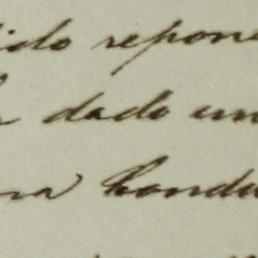 ido repon
dado un
na condu